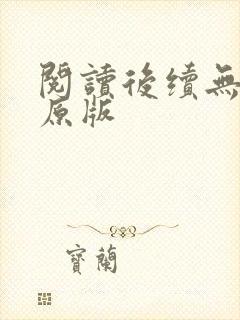 閱讀後續無
原版
寶蘭